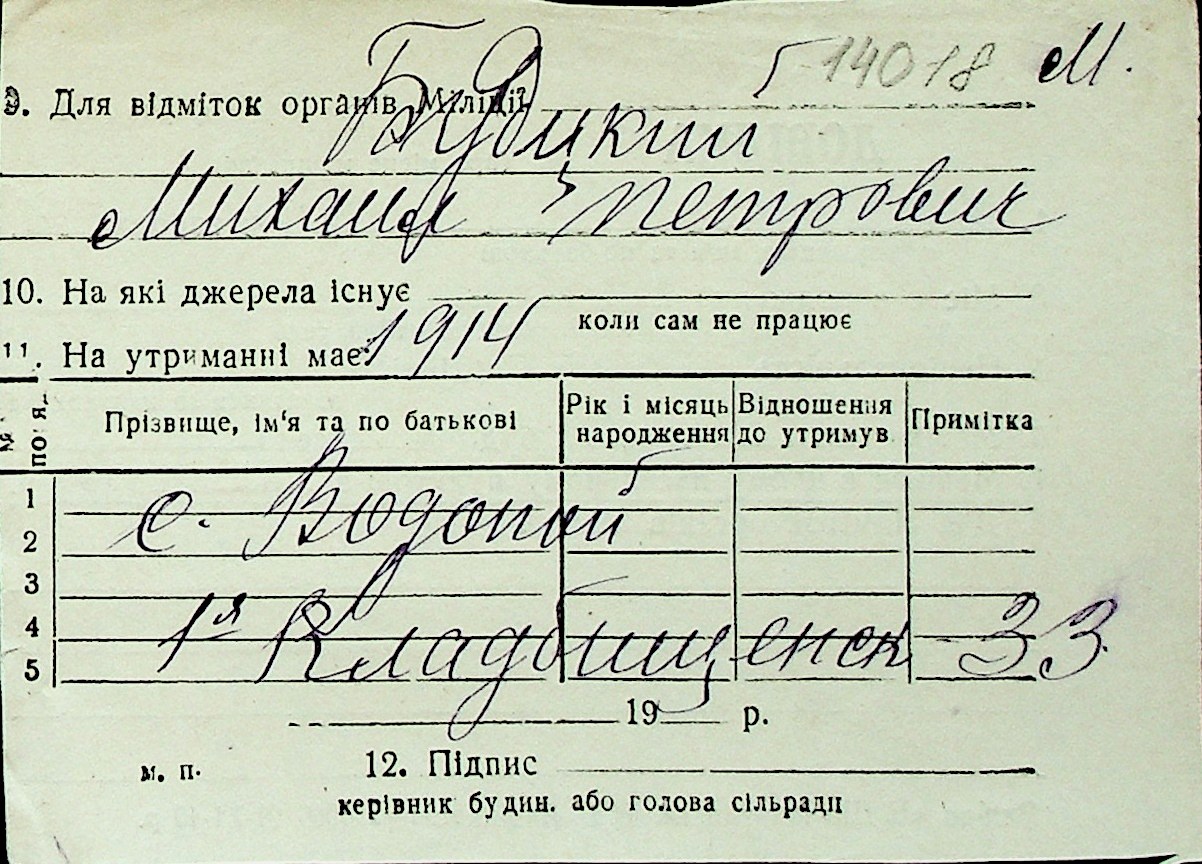 Г 14018 М.
9. Для відміток органів Міліції
Будицкий
Михаил Петрович
10. На які джерела існує
коли сам не працює
11. На утриманні має:
1914
№ по
Прізвище, ім'я та по батькові
Рік і місяць народження
Відношення до утримув
Примітка
1
с. Водопой
2
3
4
1я Кладбищенск 33
5
19 р.
м. п.
12. Підпис
керівник будин. або голова сільради